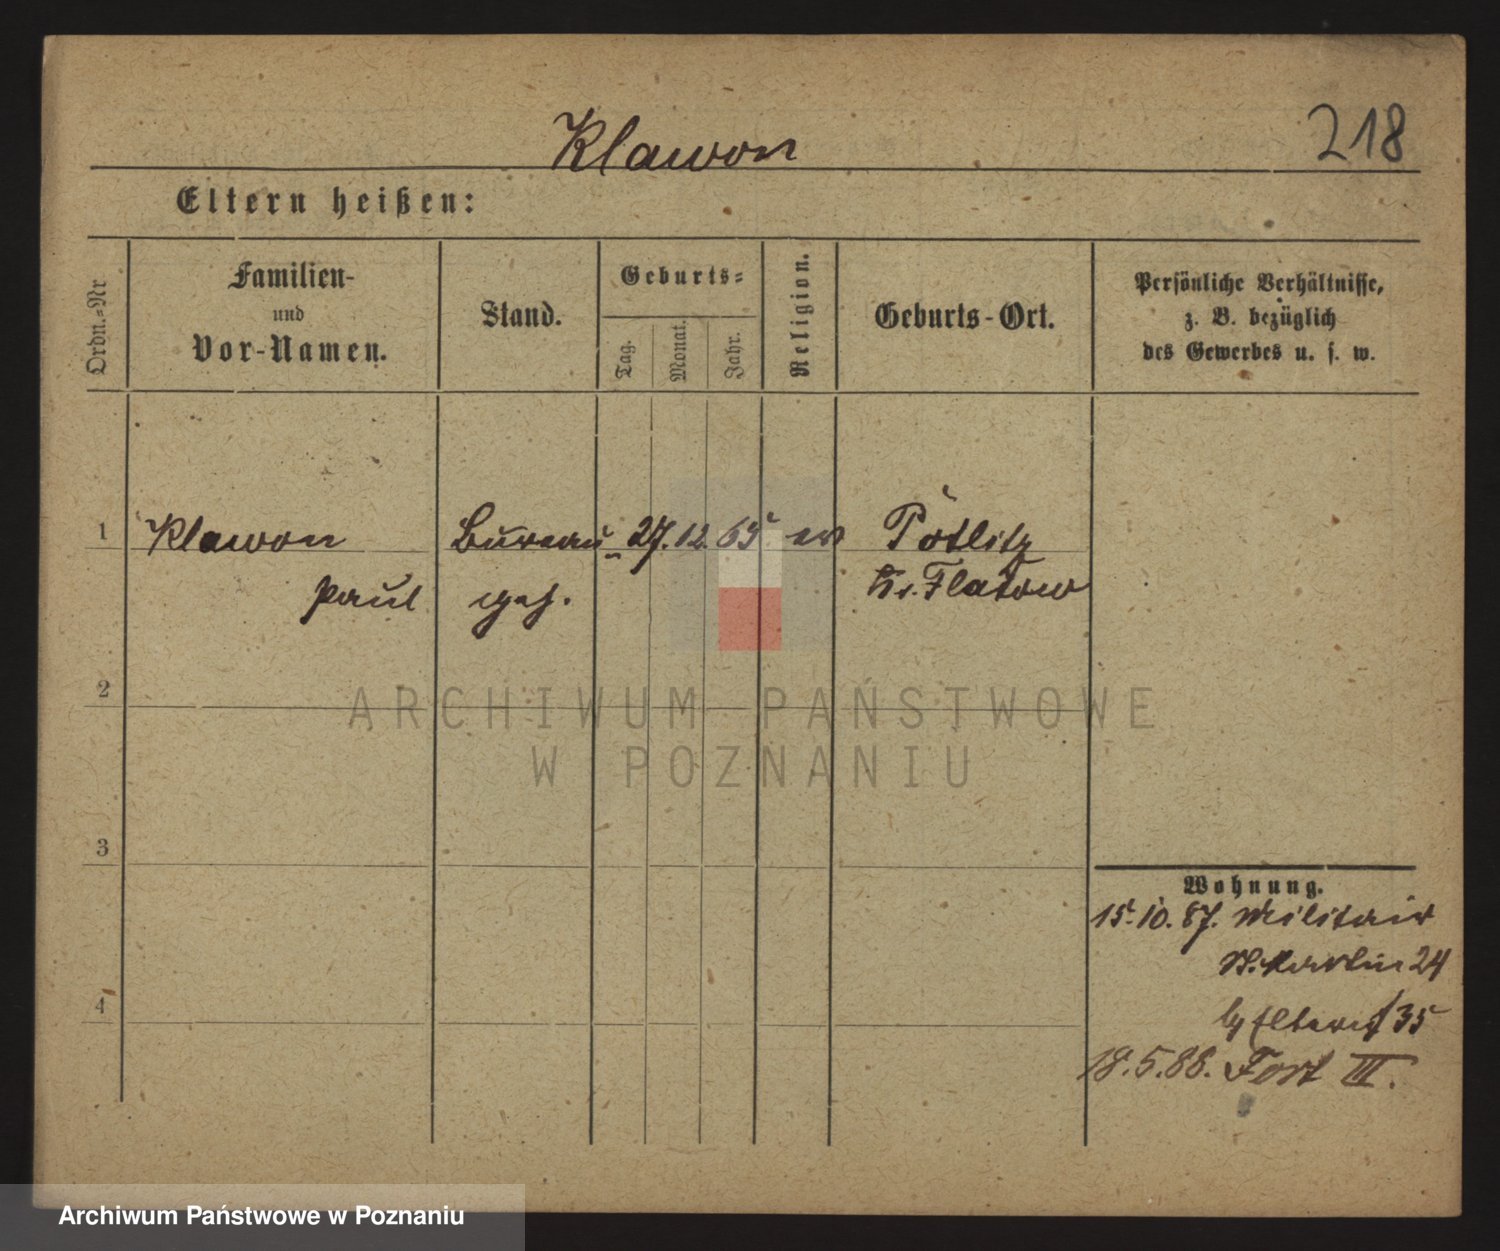 Klawon
218
Eltern heißen:
Ordn.=Nr
Familien-
und
Vor-Namen.
Stand.
Geburts=
Tag.
Monat.
Jahr.
Religion.
Geburts-Ort.
Persönliche Verhältnisse,
z. B. bezüglich
des Gewerbes u. s. w.
1
Klawon
Paul
Bureau
geh.
27. 12. 65
ev
Potlitz
Kr. Flatow
2
3
4
Wohnung.
15. 10. 87. Militair
St. Martin 24
35
18. 5. 88. Fort III.
ARCHIWUM PAŃSTWOWE
W POZNANIU
Archiwum Państwowe w Poznaniu